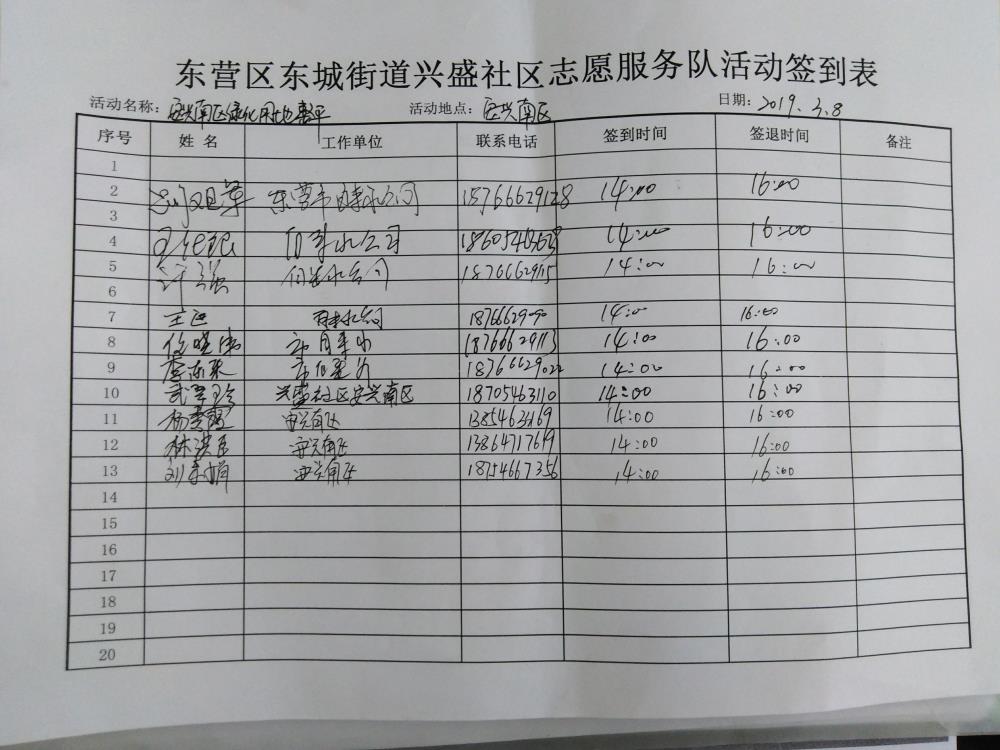 东营区东城街道兴盛社区志愿服务队活动签到表
活动名称：安兴南区绿化用地整平 活动地点：安兴南区 日期：2019.3.8
序号 姓名 工作单位 联系电话 签到时间 签退时间 备注
1
2 东营市自来水公司 15766629128 14:00 16:00
3
4 自来水公司 14:00 16:00
5 许强 自来水公司 18766629115 14:00 16:00
6
7 自来水公司 14:00 16:00
8 市自来水 18766629113 14:00 16:00
9 李东来 市自来水 18766629022 14:00 16:00
10 兴盛社区安兴南区 18705463110 14:00 16:00
11 安兴南区 14:00 16:00
12 林洪臣 安兴南区 13864717619 14:00 16:00
13 刘东娟 安兴南区 18754667356 14:00 16:00
14
15
16
17
18
19
20